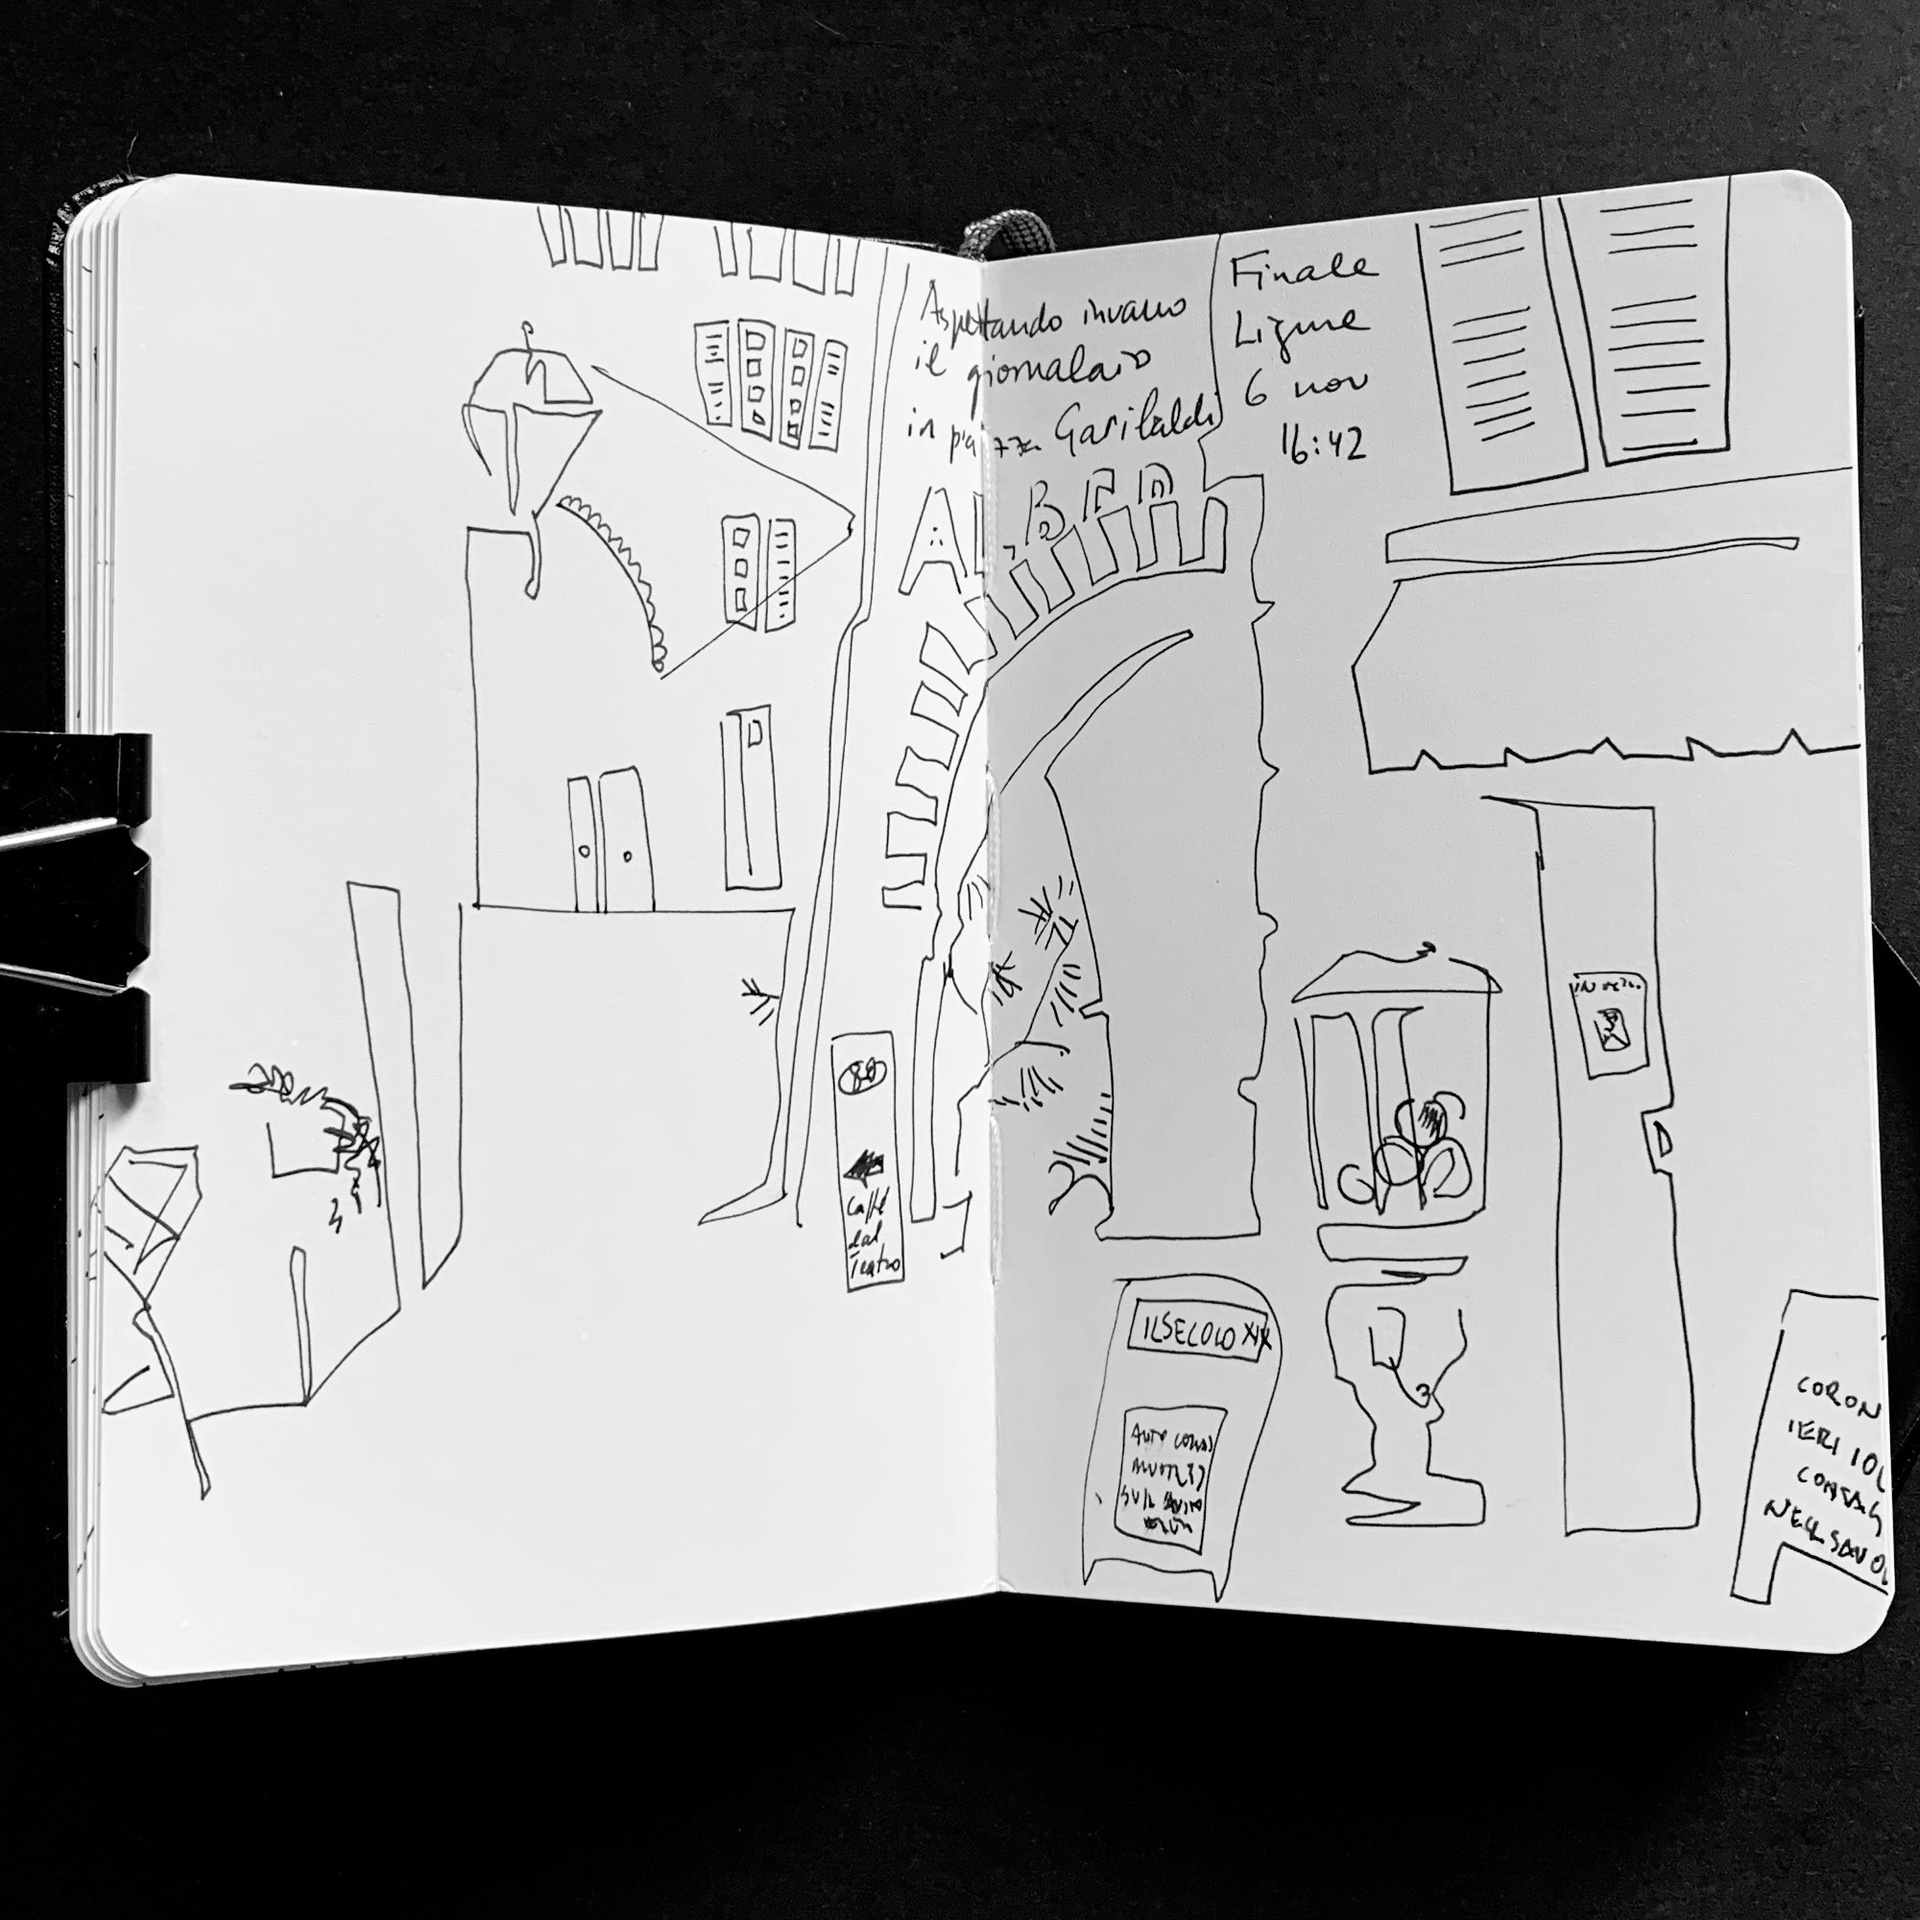 Aspettando invano
il giornalaio
in piazza Garibaldi
Finale
Ligure
6 nov
16:42
Caffè
dal
Teatro
IL SECOLO XIX
AUTO
SUL
CORON
IERI 101
CONTAG
NEL SAVO